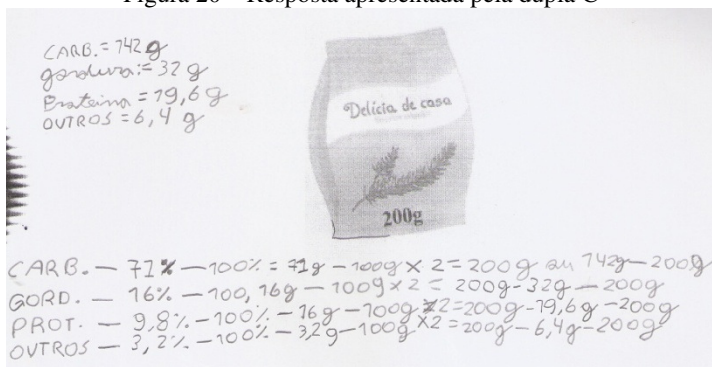 Figura 20 – Resposta apresentada pela dupla C
CARB. = 142 g
gordura := 32 g
Proteina = 19,6 g
OUTROS = 6,4 g
Delícia de casa
200g
CARB. — 71% — 100% = 71g — 100g × 2 = 200g ou 142g — 200g
GORD. — 16% — 100, 16g — 100g × 2 = 200g - 32g — 200g
PROT. — 9,8% — 100% — 16g — 100g ×2 = 200g - 19,6g — 200g
OUTROS — 3,2% — 100% — 3,2g — 100g ×2 = 200g — 6,4g — 200g